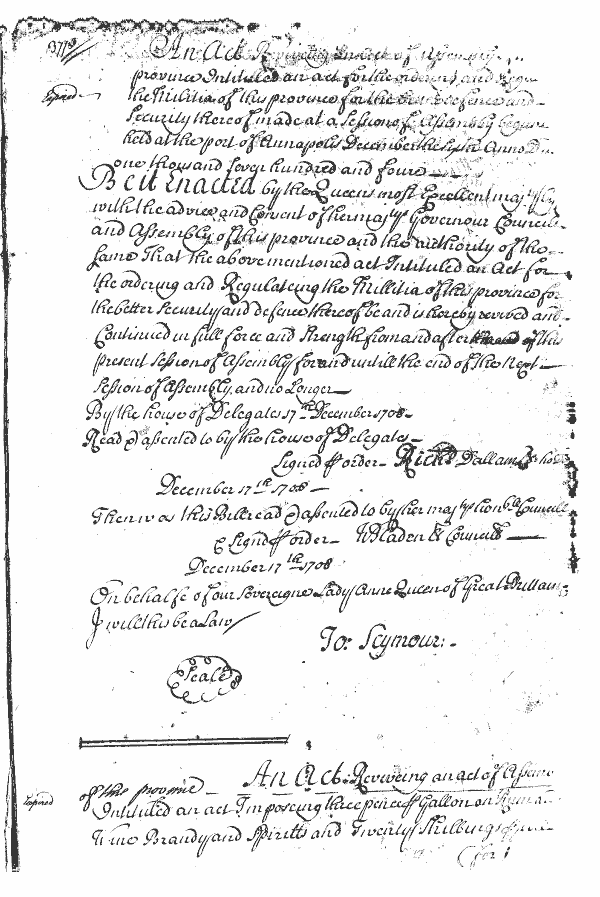 An Act Reviveing an act of Assembly
province Intituled an act for the ordering and Regu
Expired
the Militia of this province for the better defence and
Security thereof made at a Session of Assembly begun
held at the port of Annapolis December the Anno D
one thousand seven hundred and foure
Be it Enacted by the Queens most Excellent majesty
with the advice and Consent of her majtys Governour Councill
and Assembly of this province and the authority of the
same That the abovementioned act Intituled an Act for
the ordering and Regulateing the Millitia of this province for
the better Security and defence thereof be and is hereby revived and
Continued in full force and strength from and after of this
present Session of Assembly for and untill the end of the Next
Session of Assembly and no Longer
By the house of Delegates 17th December 1708
Read & assented to by the house of Delegates
Signd p order Richd Dallam Cl ho
December 17th 1708
Then was this Bill read & assented to by her majtys honble Councill
Signd p order W Bladen Cl Councill
December 17th 1708
On behalfe of our Sovereigne Lady Anne Queen of Great Brittain
I will this be a Law
Jo: Seymour:
Seale
An Act Reviveing an act of Assem
of this province
Expired
Intituled an act Imposeing three pence p Gallon on Rum
Wine Brandy and Spiritts and Twenty Shillings
for